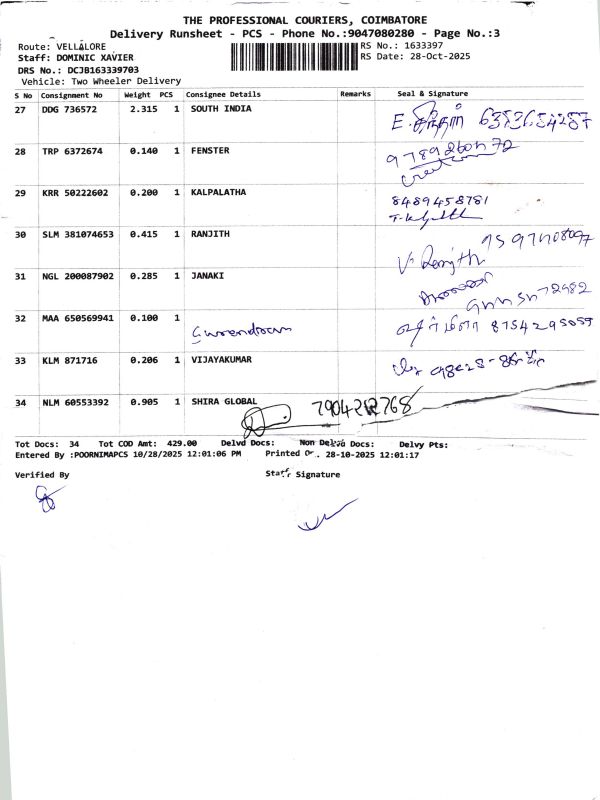 THE PROFESSIONAL COURIERS, COIMBATORE
Delivery Runsheet - PCS - Phone No.:9047080280 - Page No.:3
Route: VELLALORE RS No.: 1633397
Staff: DOMINIC XAVIER RS Date: 28-Oct-2025
DRS No.: DCJB163339703
Vehicle: Two Wheeler Delivery
S No Consignment No Weight PCS Consignee Details Remarks Seal & Signature
27 DDG 736572 2.315 1 SOUTH INDIA
E.
28 TRP 6372674 0.140 1 FENSTER
29 KRR 50222602 0.200 1 KALPALATHA
8489458781
30 SLM 381074653 0.415 1 RANJITH
V. Ranjith
31 NGL 200087902 0.285 1 JANAKI
32 MAA 650569941 0.100 1
8754295059
33 KLM 871716 0.206 1 VIJAYAKUMAR
34 NLM 60553392 0.905 1 SHIRA GLOBAL
7904212768
Tot Docs: 34 Tot COD Amt: 429.00 Delvd Docs: Non Delvd Docs: Delvy Pts:
Entered By :POORNIMAPCS 10/28/2025 12:01:06 PM Printed On. 28-10-2025 12:01:17
Verified By Staff Signature